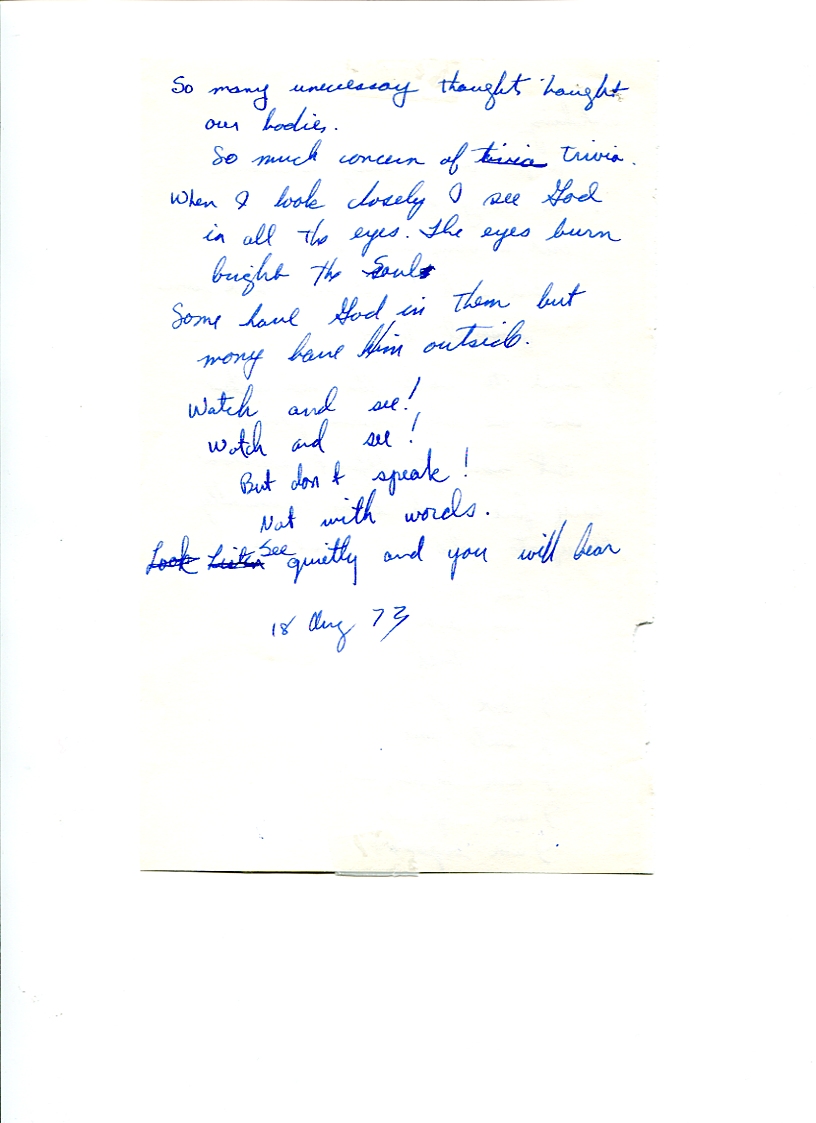 So many unecessay thoughts haight
our bodies.
So much concern of trivia trivia.
When I look closely I see God
in all the eyes. The eyes burn
bright the Soul
Some have God in them but
many have Him outside.
Watch and see!
Watch and see!
But don't speak!
Not with words.
Look Listen See quietly and you will hear
18 Aug 73